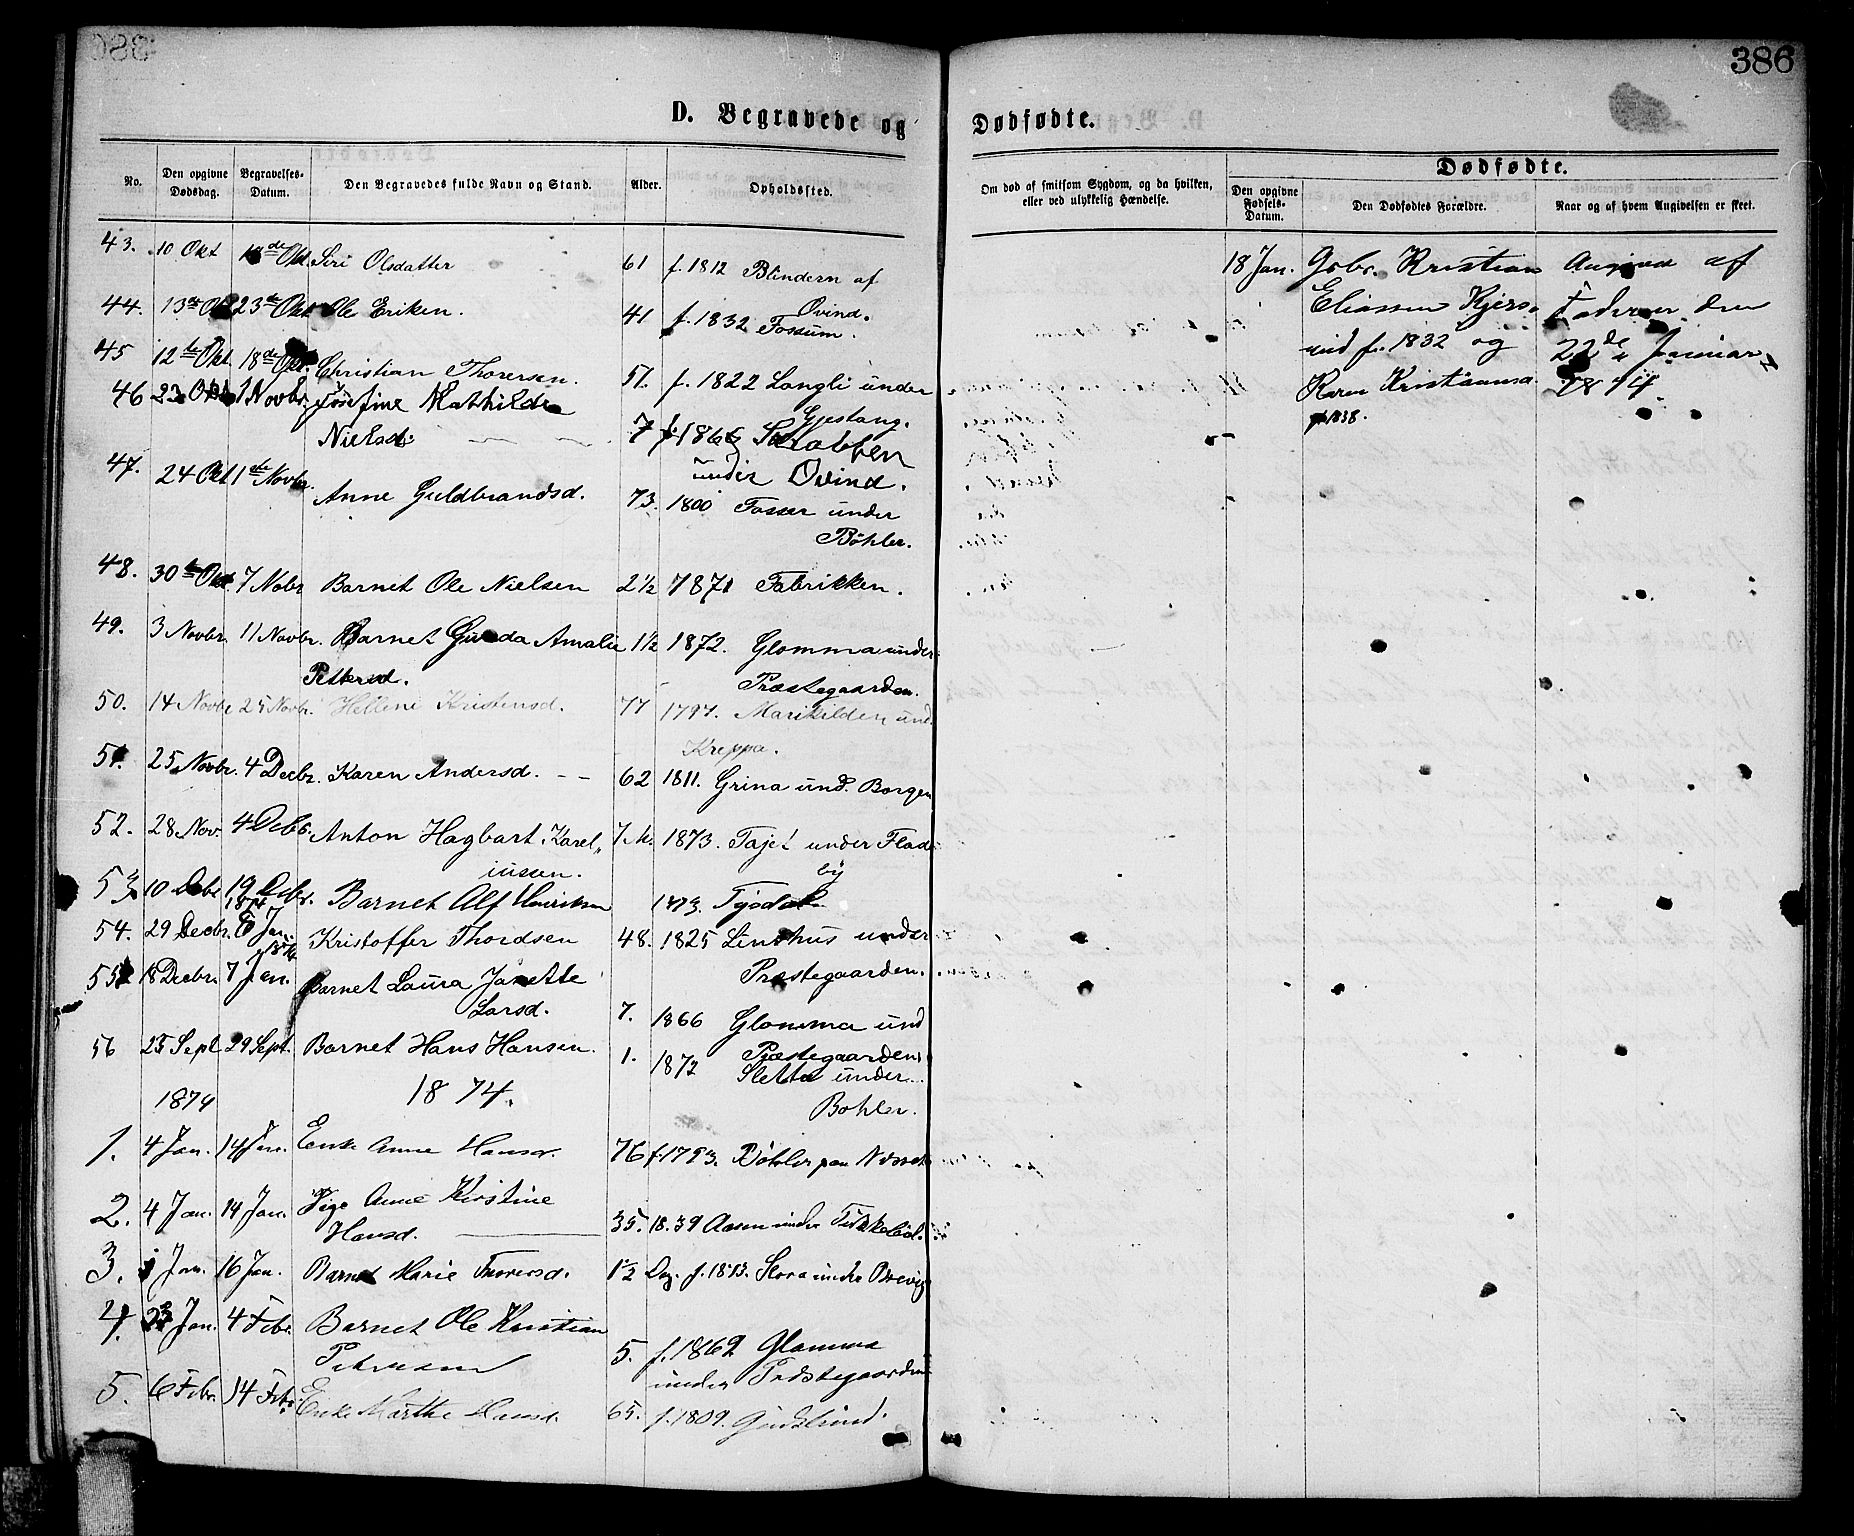 386
D. Begravede og Dødfødte.
No.
Den opgivne Dødsdag.
Begravelses-Datum.
Den Begravedes fulde Navn og Stand.
Alder.
Opholdssted.
Om død af smitsom Sygdom, og da hvilken, eller ved ulykkelig Hændelse.
Dødfødte.
Den opgivne Fødsels-Datum.
Den Dødfødtes Forældre.
Naar og af hvem Angivelsen er skeet.
43. 10 Okt Okt. Siri Olsdatter 61 f. 1812 Blindern af
Ovind.
44. 13de Okt 23de Okt Ole Eriken. 41 f. 1832 Fossum.
45 12te Okt. 18de Okt. Christian Thorersen. 51. f. 1822 Langli under
Gjestang.
46 23 Okt 1 Novbr. Josefine Mathilde
Nielsd. 7 f. 1866 Skrabben
under Ovind.
47. 24 Okt 1ste Novbr. Anne Guldbrandsd. 73. 1800 Fosser under
Bøhler.
48. 30te Okt. 7 Nobr Barnet Ole Nielsen 2½ 1871 Fabrikken.
49. 3 Novbr. 11 Novbr. Barnet Gunda Amalie 1½ 1872. Glomma under
Pettersd. Præstegaarden.
50. 14 Novbr 25 Novbr. Hellene Kristensd. 77 1797. Marikilden und.
Kreppa.
51. 25 Novbr. 4 Decbr. Karen Andersd. 62 1811. Grina und. Borgen
52. 28 Nov. 4 Debr. Anton Hagbart Karel-
iussen. 7 M. 1873. Tajet under Flad
by
53 10 Debr 19 Debr. Barnet Alf Henriksen 1873.
54. 29 Decbr. 1874 6 Jan. Kristoffer Thordsen 48. 1825 Linshus under
Præstegaarden.
55 18 Decbr. 1874 7 Jan. Barnet Laura Janette
Larsd. 7. 1866 Glomma und
Præstegaarden
56 25 Sept 29 Sept. Barnet Hans Hansen. 1. 1872 Sletta under
Bohler.
1874 1874.
1. 4 Jan. 14 Jan. Enke Anne Hansd. 76 f. 1793. Bøhler paa Næsset
2. 4 Jan. 14 Jan. Pige Anne Kirstine
Hansd. 35. 1839 Aasen under
3. 1 Jan. 16 Jan. Barnet Marie Thoresd. 1½ Dag. f. 1873. Slora under Brevig
4. 23 Jan. 4 Febr. Barnet Ole Kristian
Petersen 5. f. 1869 Glomma
under Præstegaarden
5. 6 Febr. 14 Febr. Enke Marthe Hansd. 65. f. 1809.
18 Jan. Gbr. Kristian
Eliassen Kjers-
und f. 1832 og
Karen Kristiansd.
f. 1838.
Angivet af
Faderen den
22de Januar
1874.